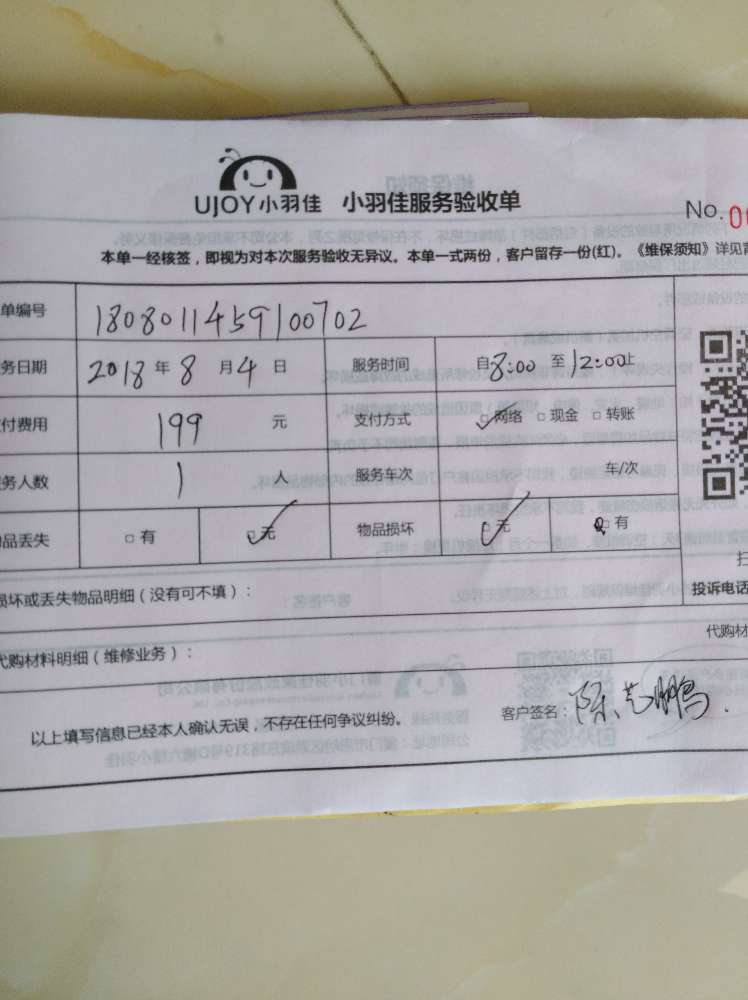 UJOY小羽佳 小羽佳服务验收单
No.
本单一经核签，即视为对本次服务验收无异议。本单一式两份，客户留存一份(红)。《维保须知》详见
单编号 1808011459100702
务日期 2018年8月4日 服务时间 自8:00至12:00止
付费用 199 元 支付方式 网络 现金 转账
务人数 1 人 服务车次 车/次
品丢失 有 无 物品损坏 无 有
损坏或丢失物品明细（没有可不填）：
投诉电话
代购材
代购材料明细（维修业务）：
以上填写信息已经本人确认无误，不存在任何争议纠纷。
客户签名：陈艺鹏